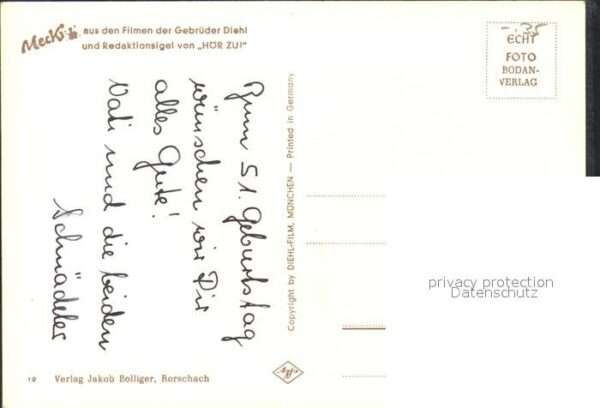 Mecki aus den Filmen der Gebrüder Diehl
und Redaktionsigel von „HÖR ZU!"
ECHT
FOTO
BODAN-
VERLAG
Zum 51. Geburtstag
wünschen wir Dir
alles Gute!
Vati und die beiden
Copyright by DIEHL-FILM, MÜNCHEN — Printed in Germany
privacy protection
Datenschutz
19 Verlag Jakob Bolliger, Rorschach